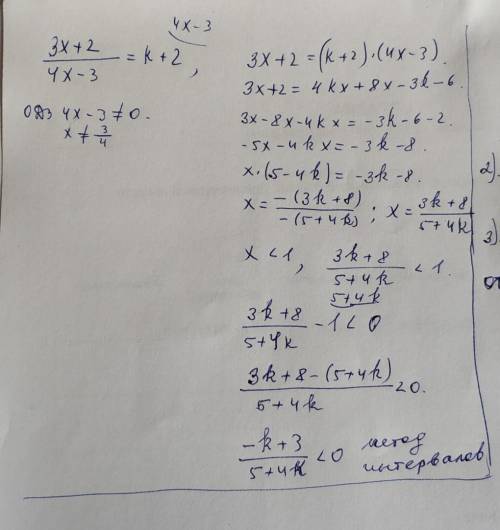 4x-3
(3x+2)/(4x-3) = k+2,
ОДЗ 4x-3≠0.
x ≠ 3/4
3x+2=(k+2)·(4x-3).
3x+2=4kx+8x-3k-6.
3x-8x-4kx=-3k-6-2.
-5x-4kx=-3k-8.
x·(5-4k)=-3k-8.
x = -(3k+8)/-(5+4k); x = (3k+8)/(5+4k)
x<1, (3k+8)/(5+4k) < 1.
5+4k
(3k+8)/(5+4k) -1<0
(3k+8-(5+4k))/(5+4k) <0.
(-k+3)/(5+4k) <0 метод
интервалов
2).
3)